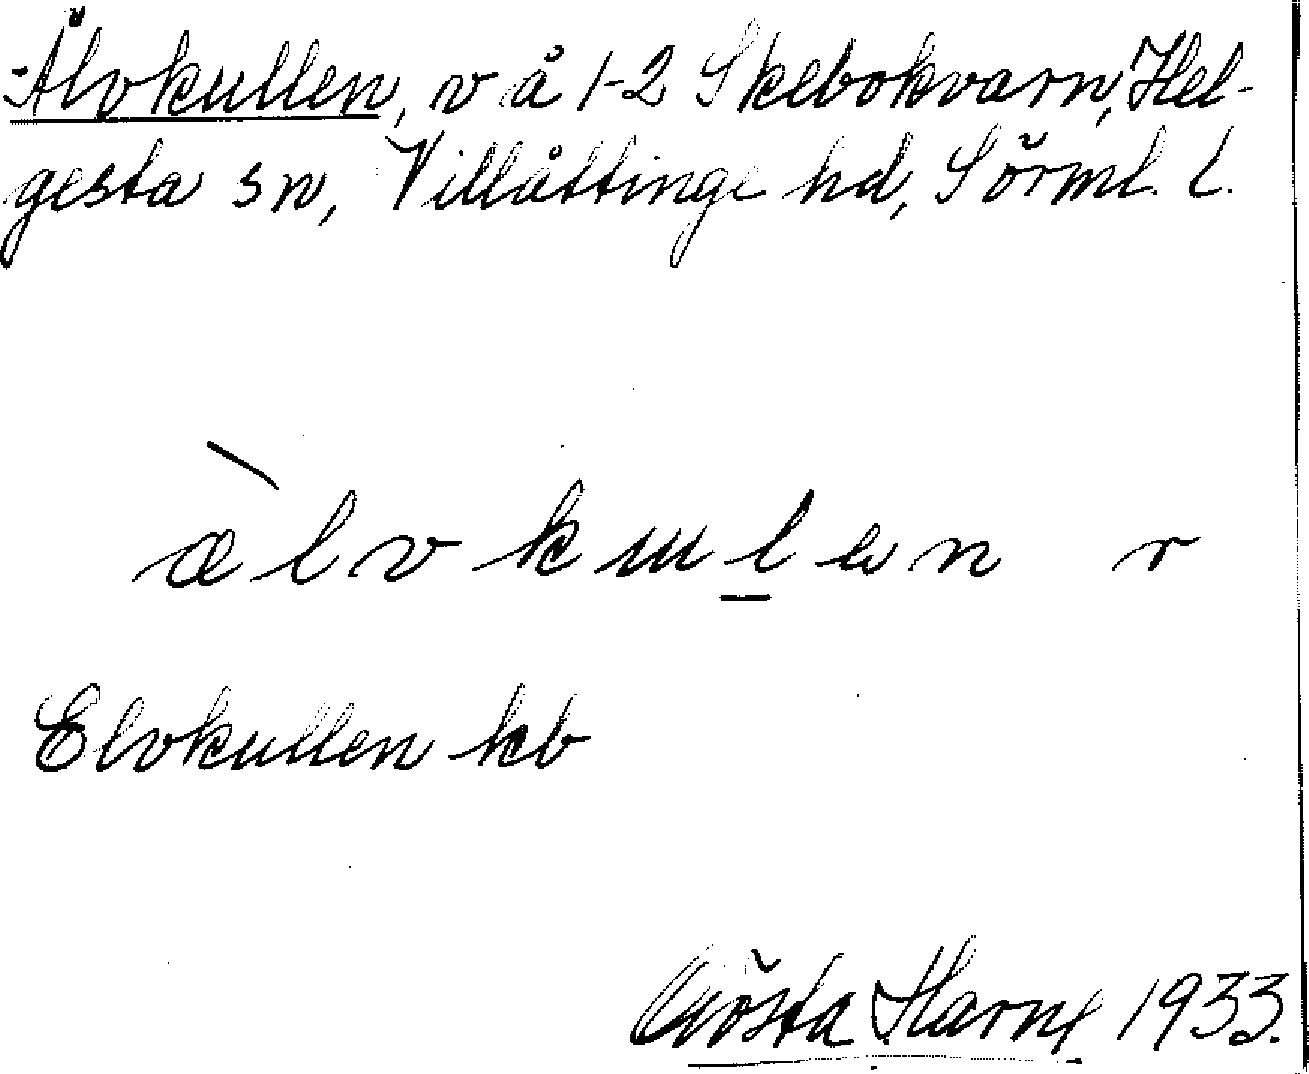 Älvkullen, v å 1-2 Skebokvarn, Hel-
gesta sn, Villåttinge hd, Sörml. l.
ælvkulen r
Elvkullen kb
Gösta Harne 1933.